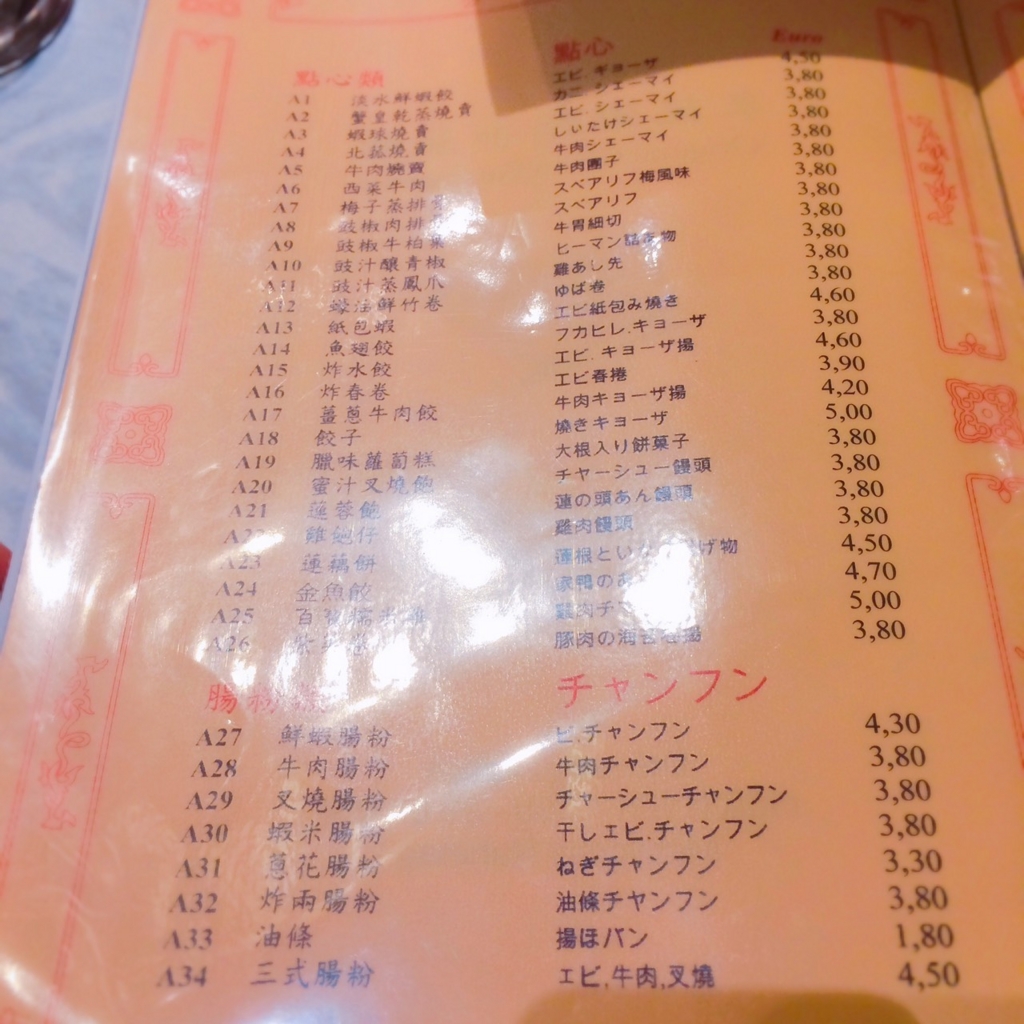 點心類 點心 Euro
A1 淡水鮮蝦餃 エビ.ギョーザ 4,50
A2 蟹皇乾蒸燒賣 カニ シェーマイ 3,80
A3 蝦球燒賣 エビ.シェーマイ 3,80
A4 北菇燒賣 しいたけシェーマイ 3,80
A5 牛肉燒賣 牛肉シェーマイ 3,80
A6 西菜牛肉 牛肉團子 3,80
A7 梅子蒸排骨 スペアリフ梅風味 3,80
A8 豉椒肉排 スペアリフ 3,80
A9 豉椒牛柏葉 牛胃細切 3,80
A10 豉汁釀青椒 ピーマン詰 物 3,80
A11 豉汁蒸鳳爪 雞あし先 3,80
A12 蠔汪鮮竹卷 ゆば卷 4,60
A13 紙包蝦 エビ紙包み燒き 3,80
A14 魚翅餃 フカヒレ.キョーザ 4,60
A15 炸水餃 エビ.キョーザ揚 3,90
A16 炸春卷 エビ春捲 4,20
A17 薑蔥牛肉餃 牛肉キョーザ揚 5,00
A18 餃子 燒きキョーザ 3,80
A19 臘味蘿蔔糕 大根入り餅菓子 3,80
A20 蜜汁叉燒飽 チャーシュー饅頭 3,80
A21 蓮蓉飽 蓮の頭あん饅頭 3,80
A22 雞飽仔 雞肉饅頭 4,50
A23 蓮藕餅 蓮根とい げ物 4,70
A24 金魚餃 5,00
A25 百 糯米雞 3,80
A26 豚肉の海苔卷揚
腸粉 チャンフン
A27 鮮蝦腸粉 ビ.チャンフン 4,30
A28 牛肉腸粉 牛肉チャンフン 3,80
A29 叉燒腸粉 チャーシューチャンフン 3,80
A30 蝦米腸粉 干しエビ.チャンフン 3,80
A31 蔥花腸粉 ねぎチャンフン 3,30
A32 炸兩腸粉 油條チヤンフン 3,80
A33 油條 揚ほパン 1,80
A34 三式腸粉 エビ,牛肉,叉燒 4,50